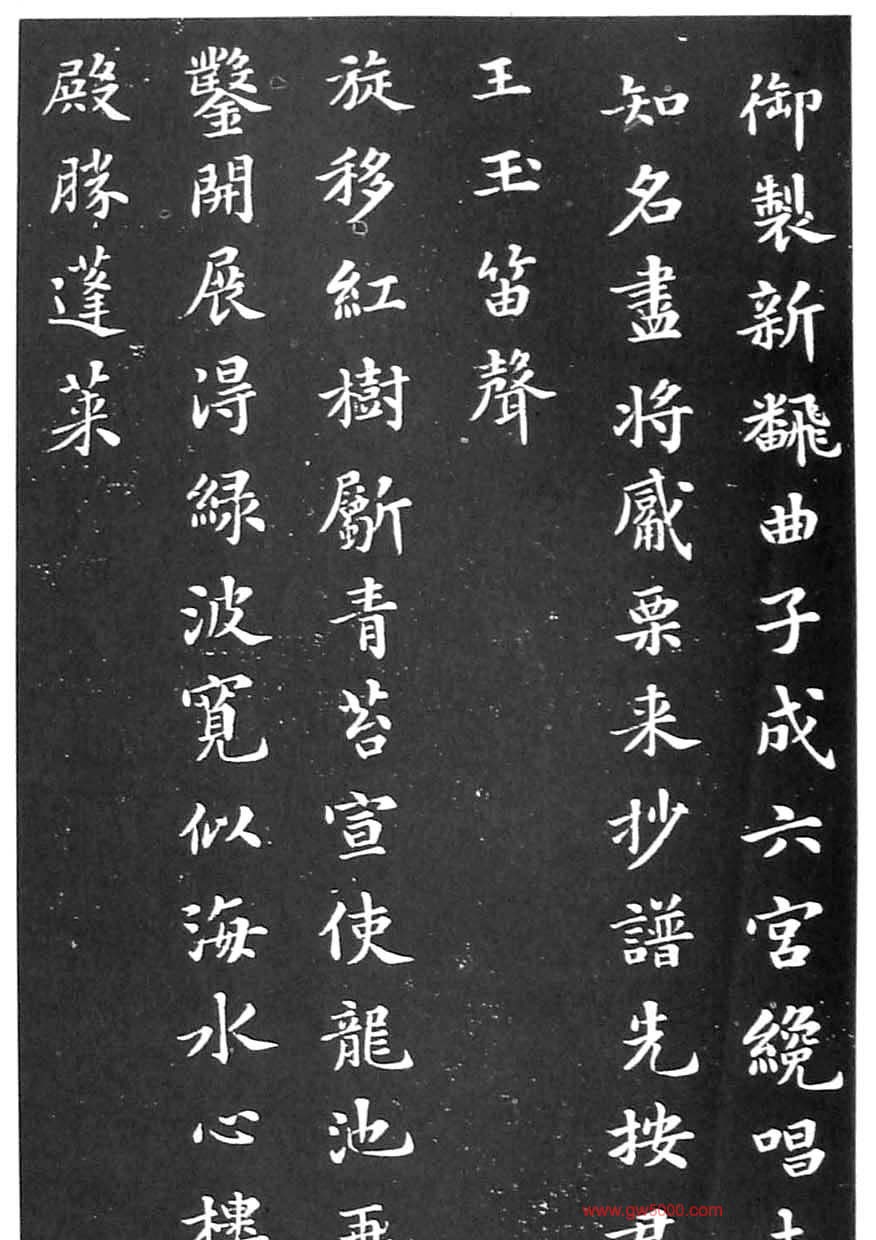 御製新飜曲子成六宮纔唱
知名盡將觱栗来抄譜先按
王玉笛聲
旋移紅樹斸青苔宣使龍池
鑿開展淂緑波寛似海水心樓
殿勝蓬莱
www.gw5000.com